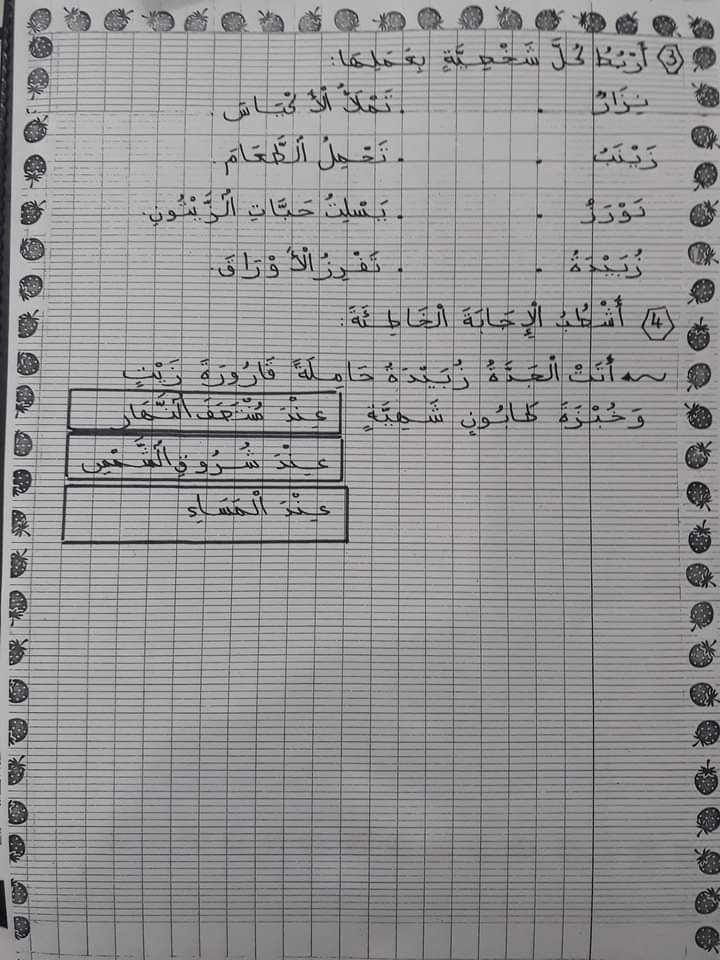 ③ أَرْبُطُ كُلَّ شَخْصِيَّةٍ بِعَمَلِهَا:
نِزَارٌ . . تَمْلَأُ الْأَكْيَاسَ.
زَيْنَبُ . . تَحْمِلُ الطَّعَامَ.
نَوْرَزٌ . . يَسْلِتُ حَبَّاتِ الزَّيْتُونِ.
زُبَيْدَةُ . . تَفْرِزُ الْأَوْرَاقَ.
④ أَشْطُبُ الْإِجَابَةَ الْخَاطِئَةَ:
أَتَتْ الْجَدَّةُ زُبَيْدَةُ حَامِلَةً قَارُورَةَ زَيْتٍ
وَخُبْزَةَ طَابُونٍ شَهِيَّةٍ عِنْدَ مُنْتَصَفِ النَّهَارِ
عِنْدَ شُرُوقِ الشَّمْسِ
عِنْدَ الْمَسَاءِ